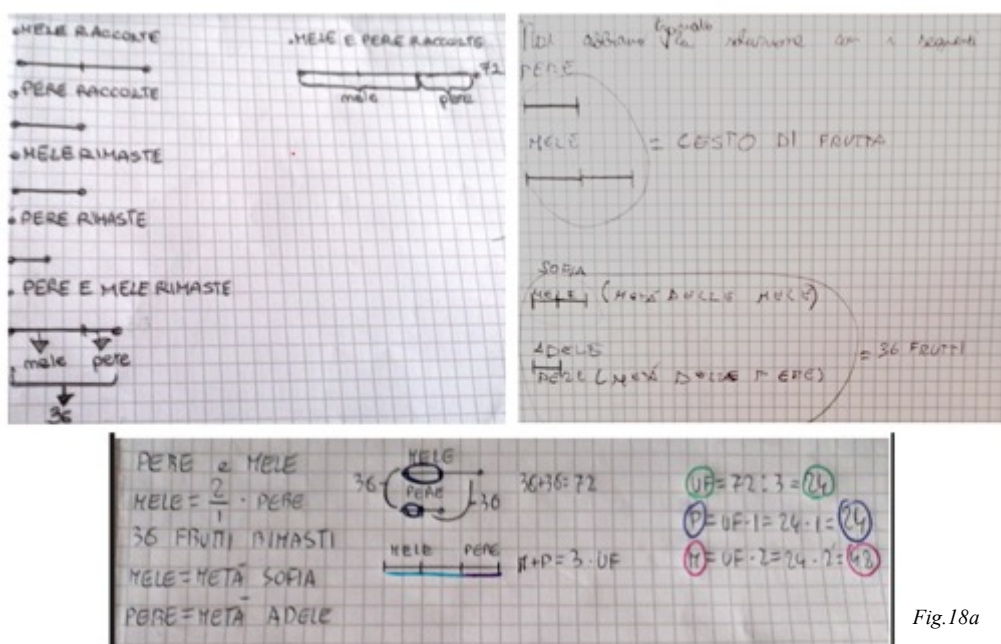 MELE RACCOLTE
PERE RACCOLTE
MELE RIMASTE
PERE RIMASTE
PERE E MELE RIMASTE
mele pere
36
MELE E PERE RACCOLTE
72
mele pere
abbiamo la relazione con i segmenti
PERE
MELE = CESTO DI FRUTTA
SOFIA
MELE (METÀ DELLE MELE)
ADELE
= 36 FRUTTI
PERE (METÀ DELLE PERE)
PERE e MELE
MELE = 2/1 · PERE
36 FRUTTI RIMASTI
MELE = METÀ SOFIA
PERE = METÀ ADELE
MELE
36 PERE 36
MELE PERE
36+36=72
M+P=3·UF
UF=72:3=24
P=UF·1=24·1=24
M=UF·2=24·2=48
Fig.18a